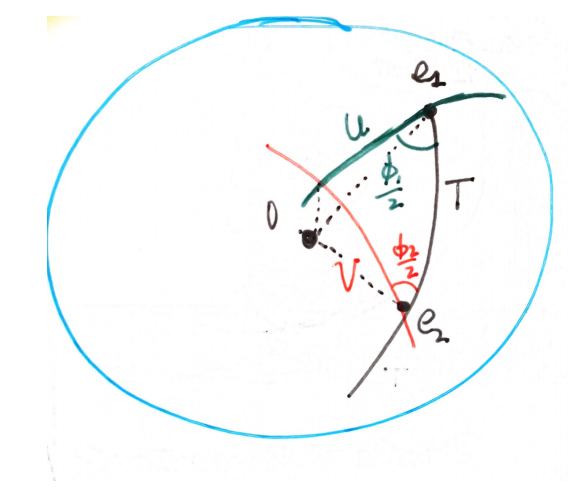 e₁
u
ϕ₁/2
T
O
ϕ₂/2
V
e₂